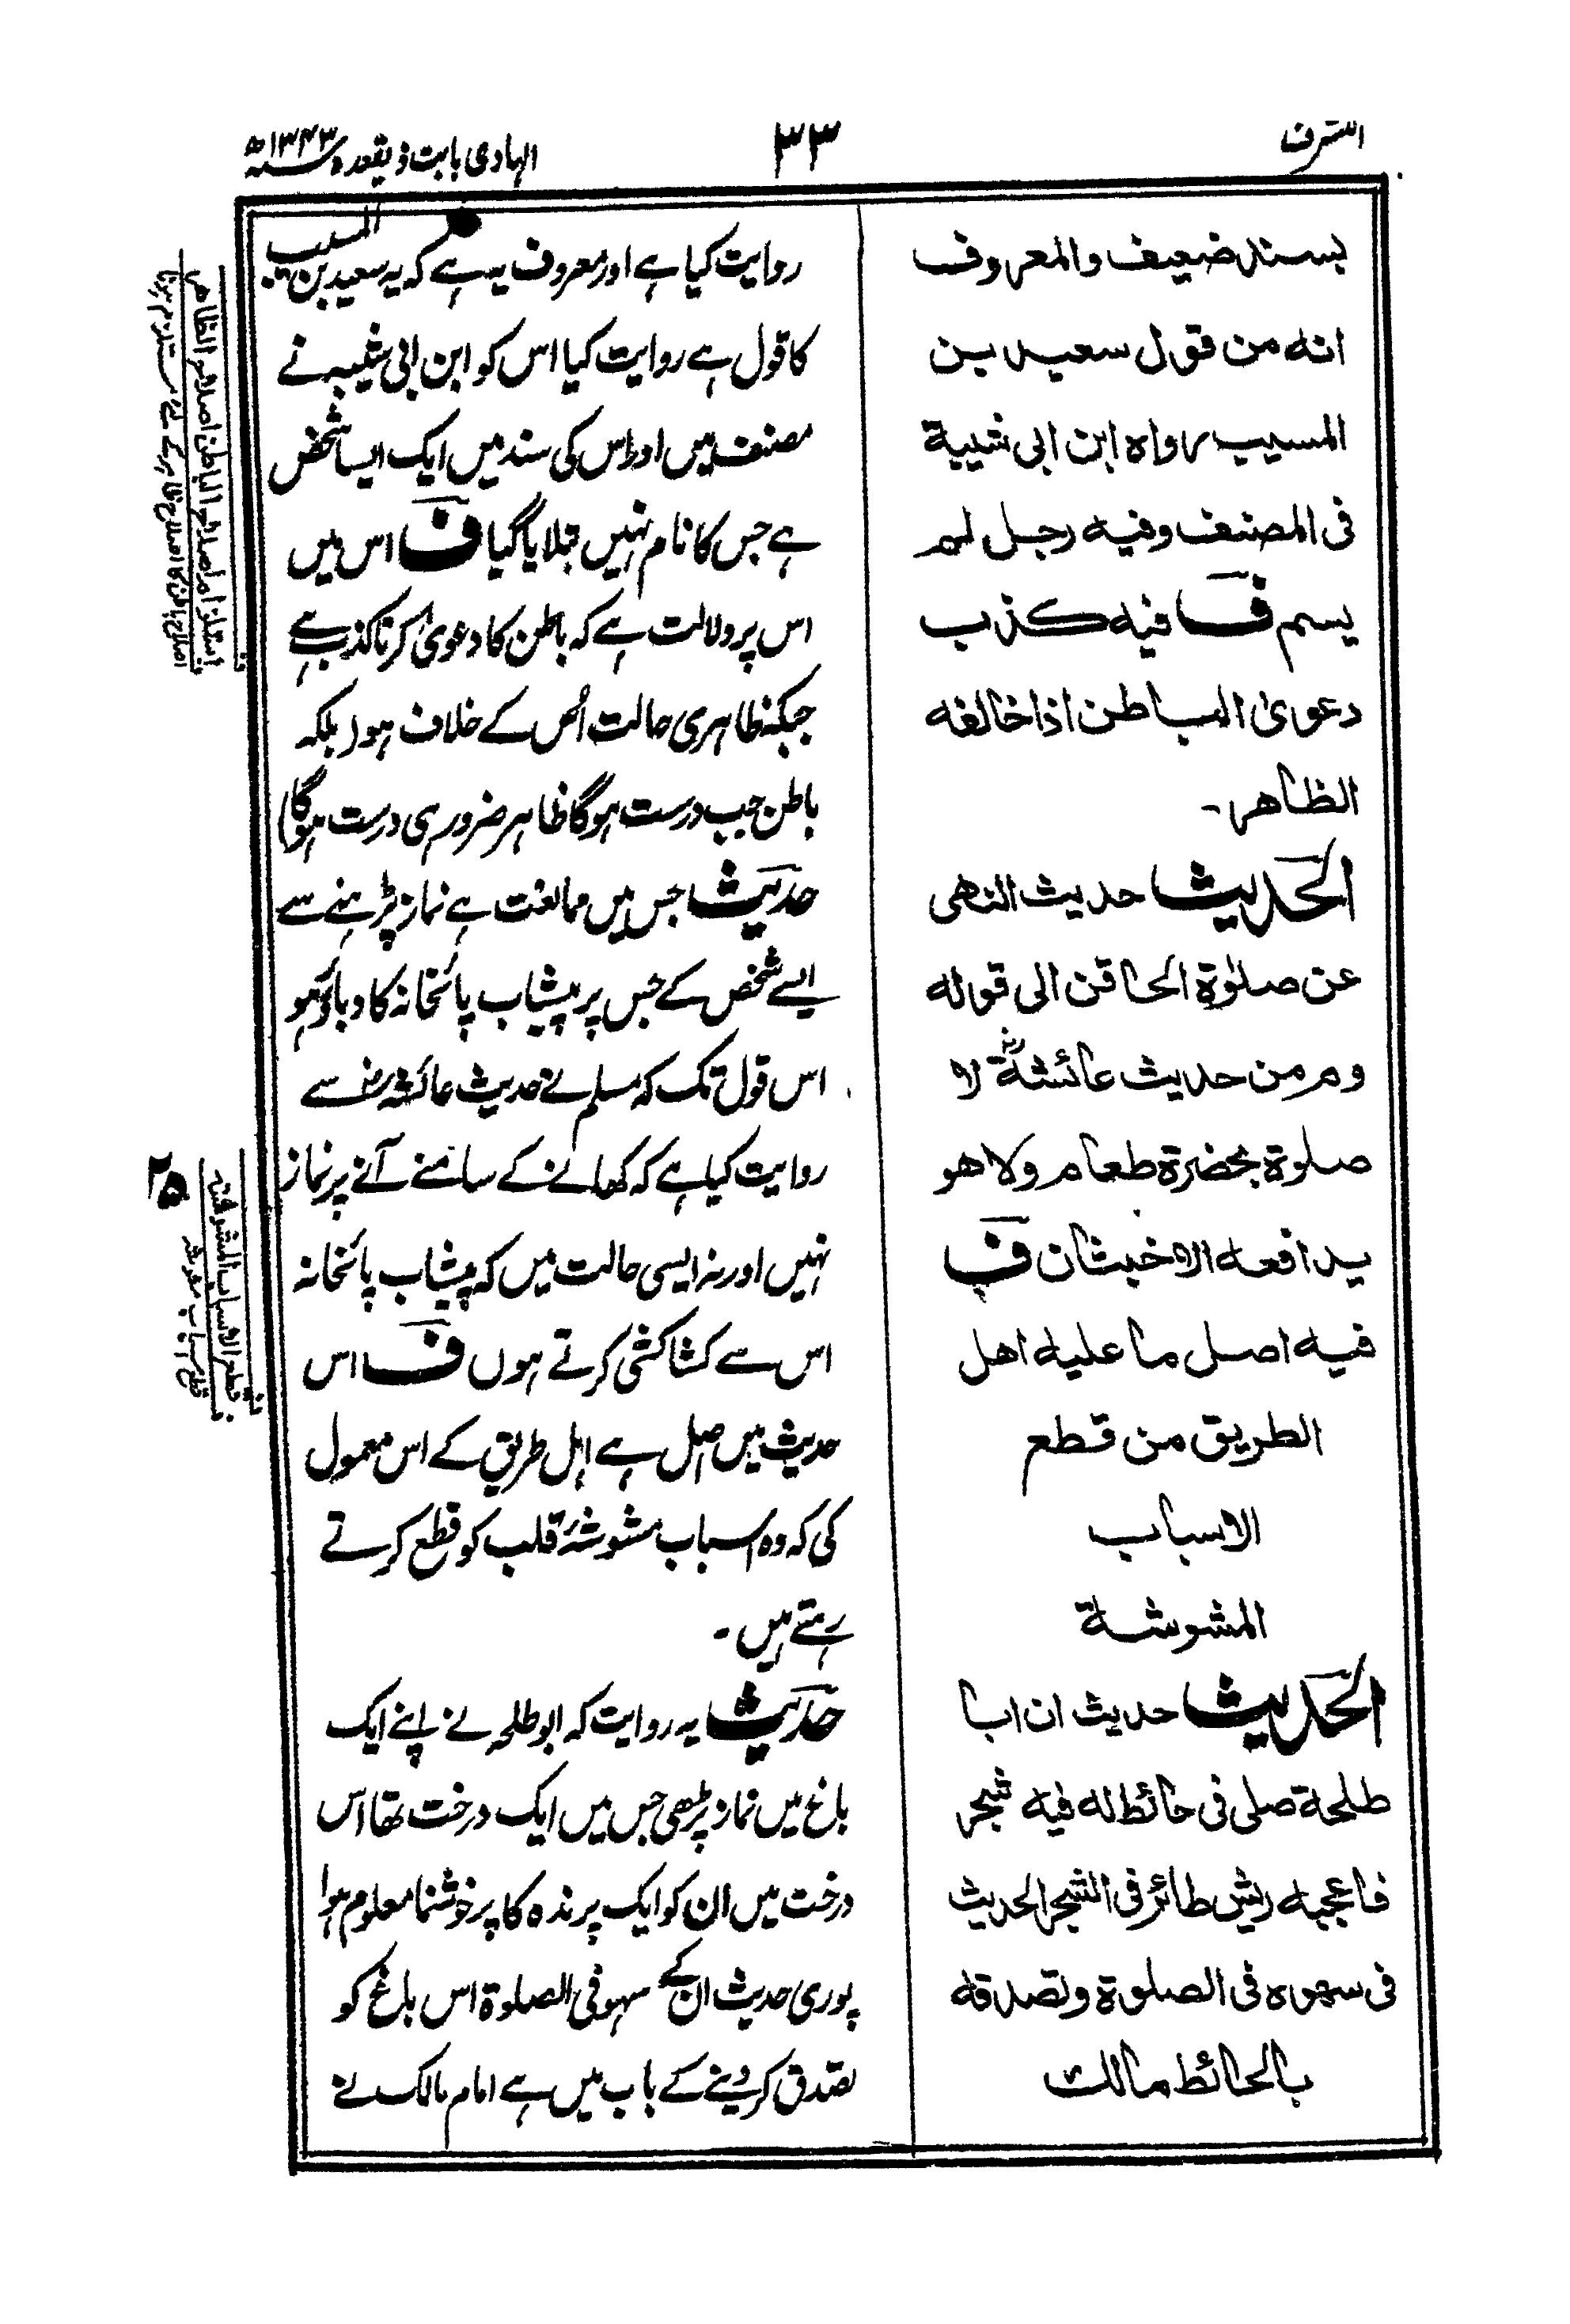 التشرف
۳۳
الہادی بابت ذیقعدہ سنہ ۱۳۴۳ھ
بسند ضعیف والمعروف
انه من قول سعید بن
المسیب رواه ابن ابی شیبة
فی المصنف وفیه رجل لم
یسم ف فیه کذب
دعویٰ الباطن اذا خالفه
الظاهر۔
الحدیث حدیث النهی
عن صلٰوة الحاقن الی قوله
وم من حدیث عائشةؓ لا
صلوة بحضرة طعام ولا هو
یدافعه الاخبثان ف
فیه اصل ما علیه اهل
الطریق من قطع
الاسباب
المشوشة
الحدیث حدیث ان ابا
طلحة صلی فی حائط له فیه شجر
فاعجبه ریش طائر فی الشجر الحدیث
فی سهوه فی الصلوة وتصدقه
بالحائط مالك
روایت کیا ہے اور معروف یہ ہے کہ یہ سعید بن المسیب
کا قول ہے روایت کیا اس کو ابن ابی شیبہ نے
مصنف میں اور اس کی سند میں ایک ایسا شخص
ہے جس کا نام نہیں بتلایا گیا ف اس میں
اس پر دلالت ہے کہ باطن کا دعویٰ کرنا کذب ہے
جبکہ ظاہری حالت اُس کے خلاف ہو (بلکہ
باطن جب درست ہوگا ظاہر ضرور ہی درست ہوگا)
حدیث جس میں ممانعت ہے نماز پڑہنے سے
ایسے شخص کے جس پر پیشاب پائخانہ کا دباؤ ہو
اس قول تک کہ مسلم نے حدیث عائشہ رضؓ سے
روایت کیا ہے کہ کھانے کے سامنے آنے پر نماز
نہیں اور نہ ایسی حالت میں کہ پیشاب پائخانہ
اس سے کشاکشی کرتے ہوں ف اس
حدیث میں اصل ہے اہل طریق کے اس معمول
کی کہ وہ اسباب مشوشۂ قلب کو قطع کرتے
رہتے ہیں۔
حدیث یہ روایت کہ ابو طلحہ نے اپنے ایک
باغ میں نماز پڑھی جس میں ایک درخت تھا اس
درخت میں ان کو ایک پرندہ کا پر خوشنما معلوم ہوا
پوری حدیث ان کے سہو فی الصلوة اس باغ کو
تصدق کر دینے کے باب میں ہے امام مالک نے
استلزام اصلاح الباطن اصلاح الظاهر
اصلاح باطن کا اصلاح ظاہر کے لئے مستلزم ہونا
۲۵
قطع الاسباب المشوشة
قطع اسباب مشوشہ